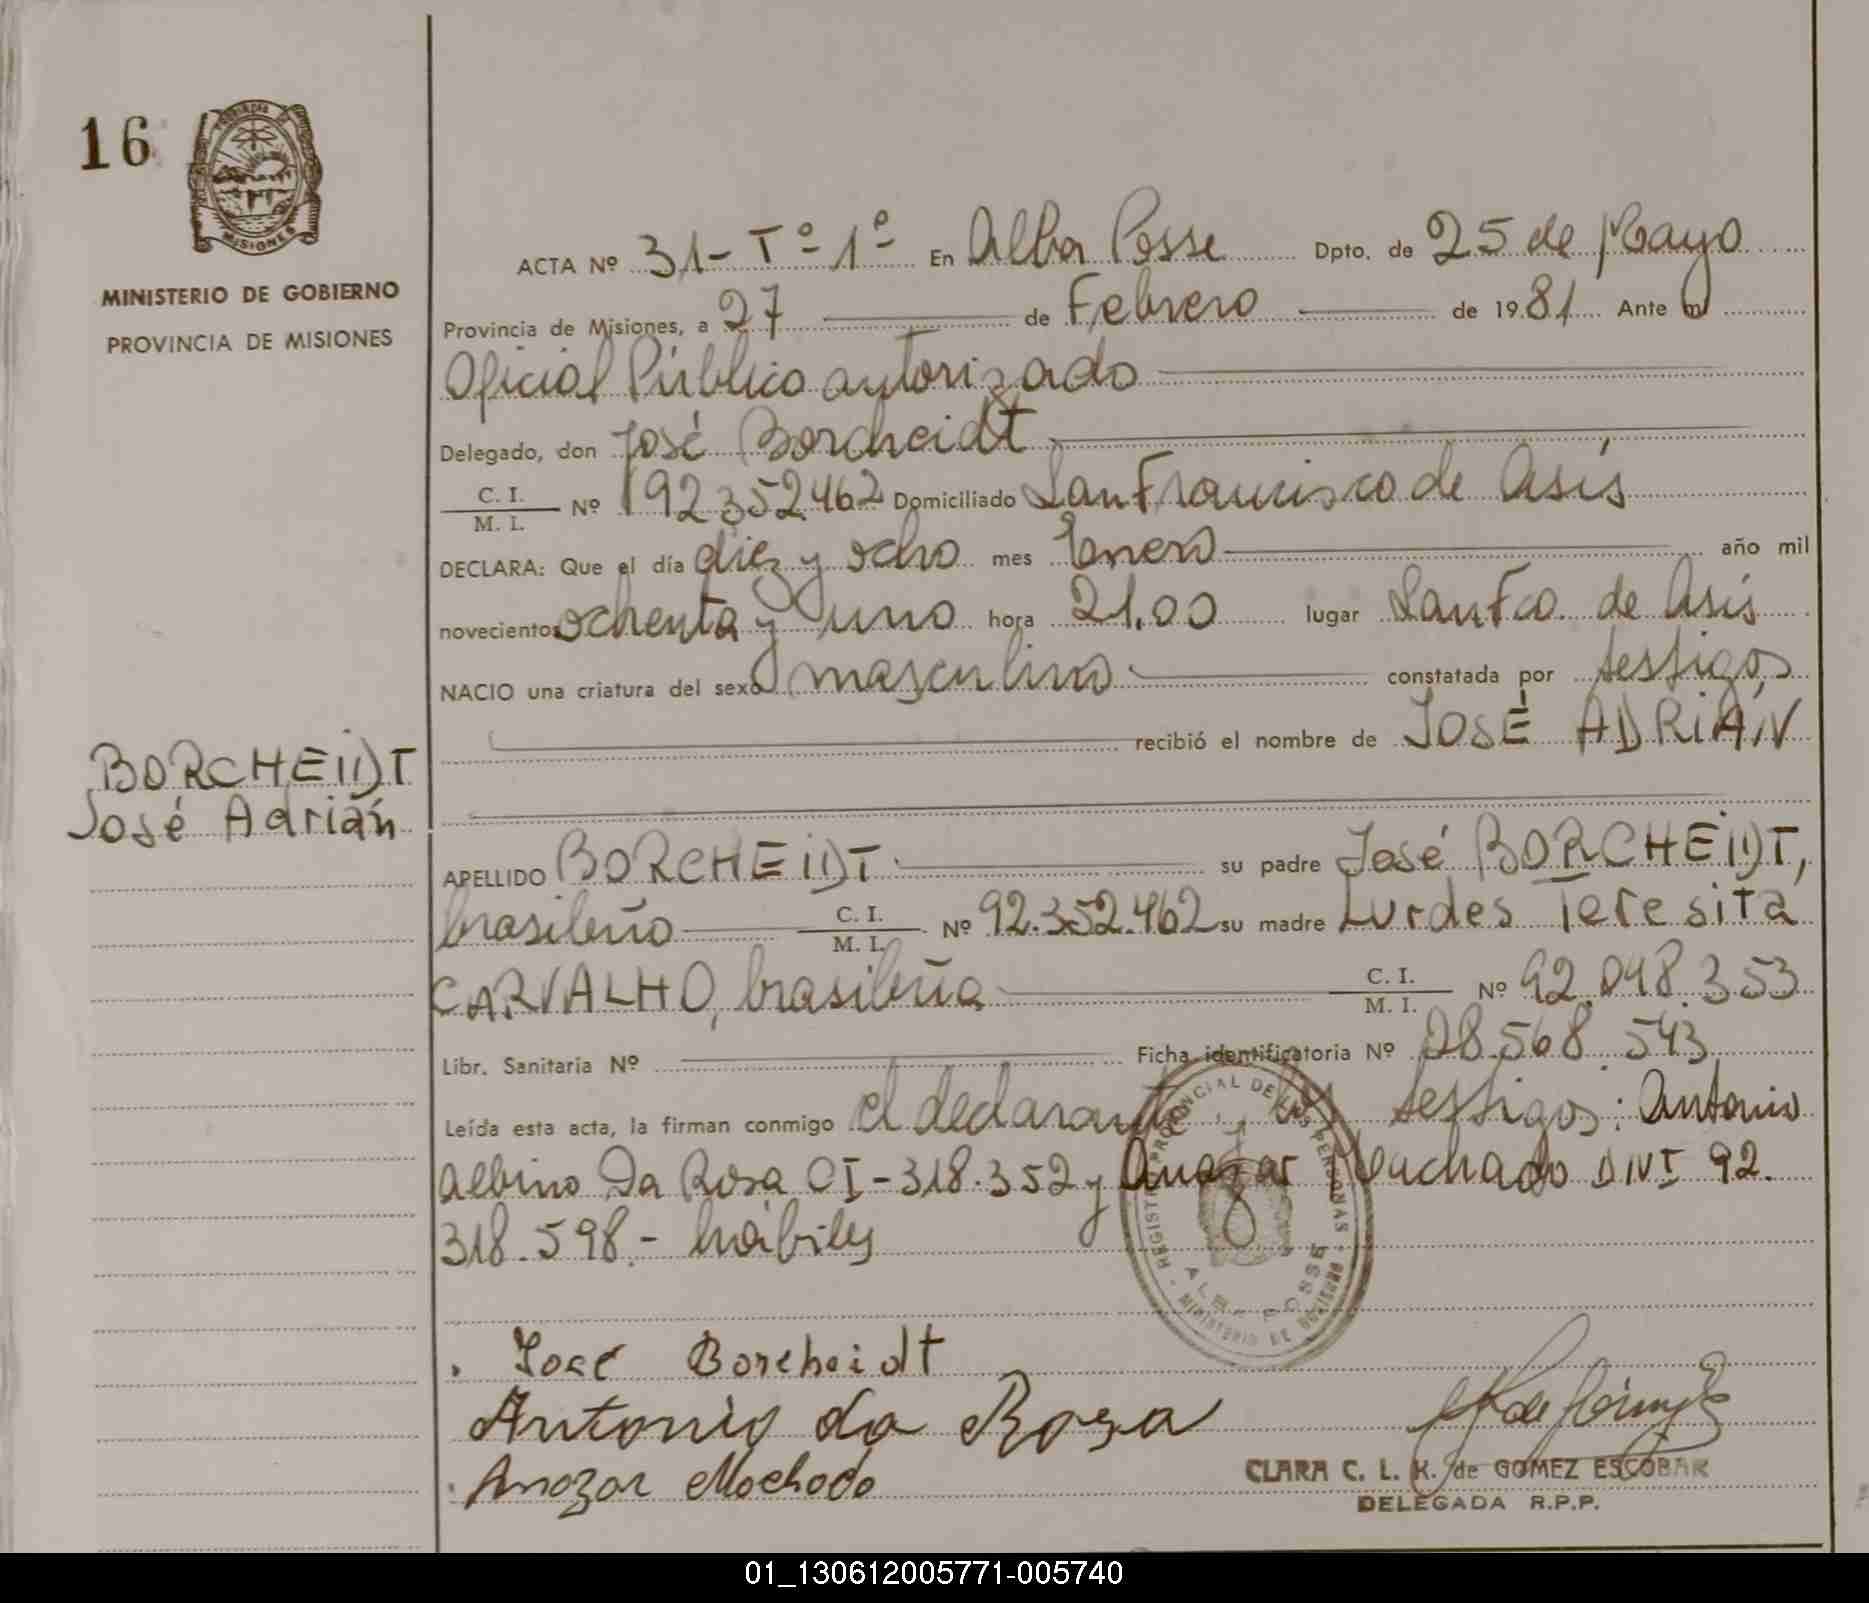 16
MISIONES
MINISTERIO DE GOBIERNO
PROVINCIA DE MISIONES
ACTA Nº 31- Tº- 1º En Alba Posse Dpto. de 25 de Mayo
Provincia de Misiones, a 27 de Febrero de 1981 Ante mí
Oficial Público autorizado
Delegado, don José Borcheidt
C. I.
M. I. Nº 92352462 Domiciliado San Francisco de Asís
DECLARA: Que el día diez y ocho mes Enero año mil
novecientos ochenta y uno hora 21,00 lugar San Fco. de Asís
NACIO una criatura del sexo masculino constatada por testigos
recibió el nombre de JOSÉ ADRIÁN
BORCHEIDT
José Adrián
APELLIDO BORCHEIDT su padre José BORCHEIDT,
brasileño C. I.
M. I. Nº 92.352.462 su madre Lurdes Teresita
CARVALHO, brasileña C. I.
M. I. Nº 92.048.353
Libr. Sanitaria Nº Ficha identificatoria Nº 28.568.543
Leída esta acta, la firman conmigo el declarante, los testigos: Antonio
Albino Da Rosa CI-318.352 y Anazar Machado DNI 92.
318.598.- hábiles
REGISTRO PROVINCIAL DE LAS PERSONAS
ALBA POSSE
MINISTERIO DE GOBIERNO
José Borcheidt
Antonio da Rosa
Anazar Machado
CLARA C. L. K. de GOMEZ ESCOBAR
DELEGADA R.P.P.
01_130612005771-005740